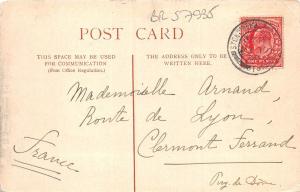 BR 57935
POST CARD
THIS SPACE MAY BE USED
FOR COMMUNICATION
(Post Office Regulation.)
THE ADDRESS ONLY TO BE
WRITTEN HERE.
Mademoiselle Arnand,
Route de Lyon,
Clermont Ferrand
Puy. de Dôme.
France
ONE PENNY